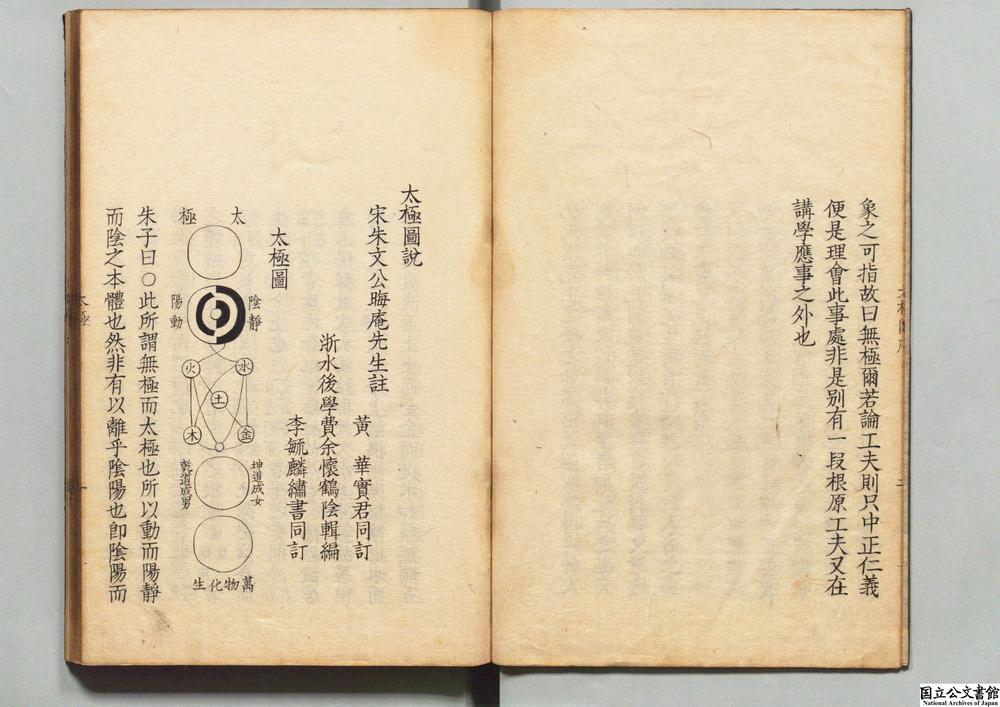 象之可指故曰無極爾若論工夫則只中正仁義
便是理會此事處非是别有一段根原工夫又在
講學應事之外也
太極圖說
宋朱文公晦庵先生註
黃　華實君同訂
浙水後學費余懷鶴陰輯編
李毓麟繡書同訂
太極圖
太極
陰靜
陽動
水
火
土
金
木
坤道成女
乾道成男
萬物化生
朱子曰○此所謂無極而太極也所以動而陽靜
而陰之本體也然非有以離乎陰陽也卽陰陽而
太極
一
国立公文書館
National Archives of Japan